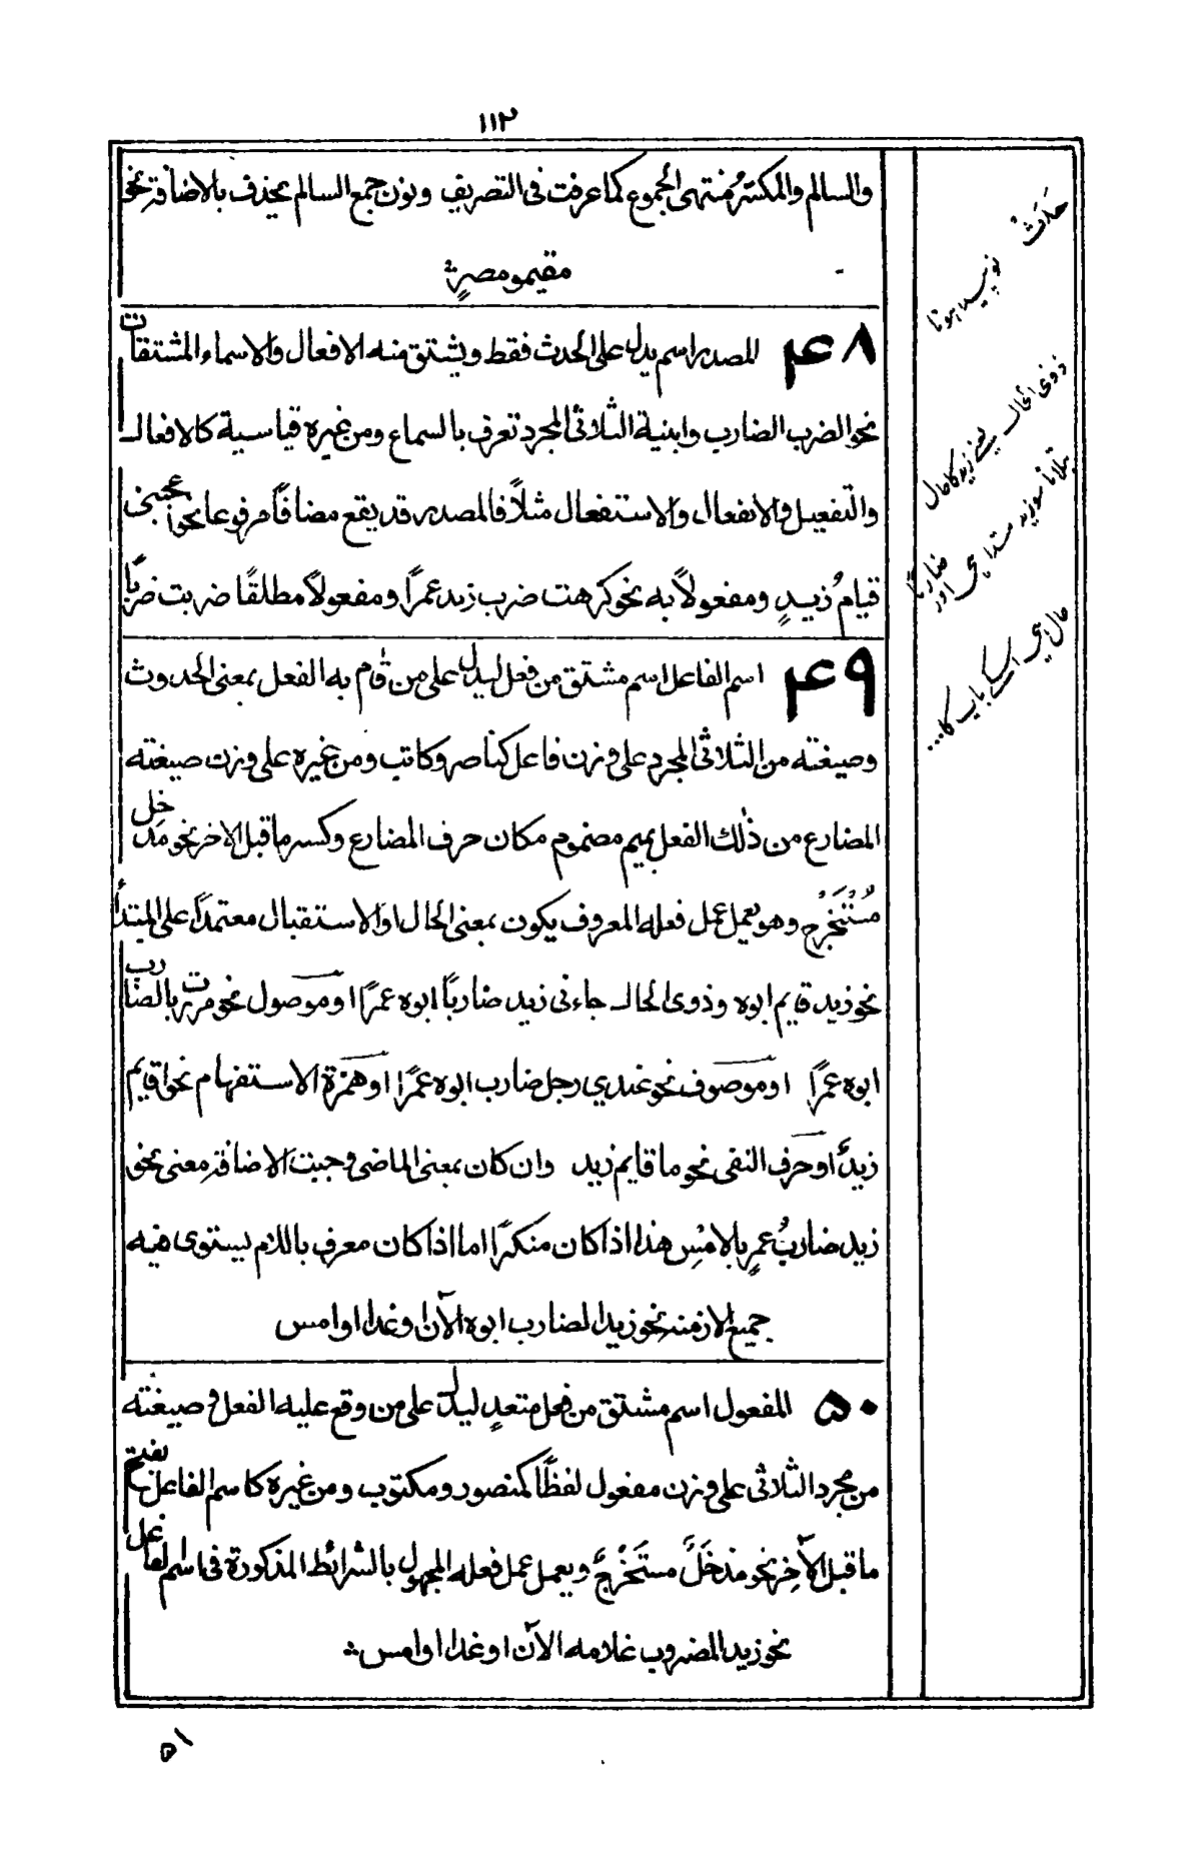 ۱۱۲
والسالم والمكسّرُ منتهى الجموع كما عرفت فى التصريف ونون جمع السالم يحذف بالاضافة نحو
مقيمو مصرٍ
۴۸ المصدر اسم يدل على الحدث فقط ويشتق منه الافعال والاسماء المشتقات
نحو الضرب الضارب وابنية الثلاثى المجرد تعرف بالسماع ومن غيره قياسية كالافعال
والتفعيل والانفعال والاستفعال مثلاً فالمصدر قد يقع مضافاً مرفوعا نحو اعجبنى
قيامُ زيدٍ ومفعولاً به نحو كرهت ضرب زيد عمرًا ومفعولاً مطلقًا ضربت ضربًا
۴۹ اسم الفاعل اسم مشتق من فعل ليدل على من قام به الفعل بمعنى الحدوث
وصيغته من الثلاثى المجرد على وزن فاعل كناصر وكاتب ومن غيره على وزن صيغته
المضارع من ذٰلك الفعل بميم مضموم مكان حرف المضارع وكسر ما قبل الاخر نحو مدخل
مُسْتَخْرِج وهو يعمل عمل فعله المعروف يكون بمعنى الحال او الاستقبال معتمدًا على المبتدأ
نحو زيد قايم ابوه وذوى الحال جاءنى زيد ضاربًا ابوه عمرًا او موصول نحو مررت بالضارب
ابوه عمرًا او موصوف نحو عندي رجل ضارب ابوه عمرًا او همزة الاستفهام نحو اقايم
زيدٌ او حرف النفى نحو ما قايم زيد وان كان بمعنى الماضى وجبت الاضافة معنى نحو
زيد ضاربُ عمرٍ بالامْسِ هذا اذا كان منكرًا اما اذا كان معرف باللام يستوى فيه
جميع الازمنه نحو زيد الضارب ابوه الآن او غدا او امس
۵۰ المفعول اسم مشتق من فعل متعدٍ ليدل على من وقع عليه الفعل وصيغته
من مجرد الثلاثى على وزن مفعول لفظًا كمنصور ومكتوب ومن غيره كاسم الفاعل بفتح
ما قبل الآخر نحو مدخَلٌ مستَخْرَجٌ ويعمل عمل فعله المجهول بالشرائط المذكورة فى اسم الفاعل
نحو زيد المضروب غلامه الآن او غدا او امس
حَدَثْ نو پیدا ہونا
ذوی الحال یعنے زید کا حال
بتلانا سو زید مبتدا ہی اور ضاربًا
حال ہی اسکے باپ کا...
۵۱